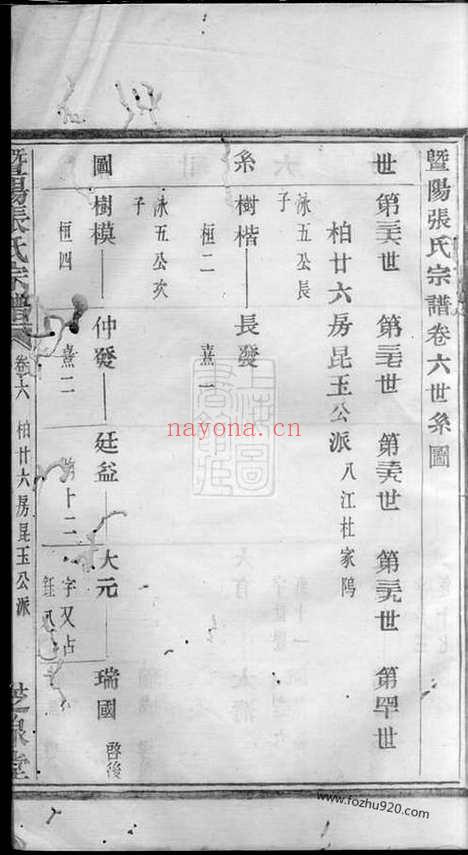 暨陽張氏宗譜卷六世系圖
世 第三六世 第三七世 第三八世 第三九世 第四十世
柏廿六房昆玉公派 八江杜家隖
系 泳五公長子
樹楷 長發
桓二 熹一
泳五公次子
圖 樹模 仲發 廷益 大元 瑞國 啓後
桓四 熹二 十二 字又占 鈺八
暨陽張氏宗譜 卷六 柏廿六房昆玉公派
nayona.cn
www.fozhu920.com